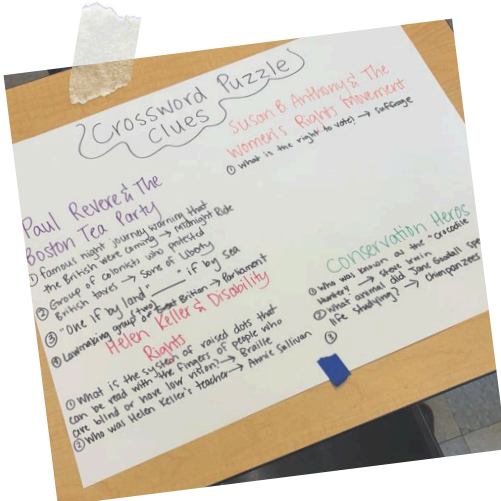 Crossword Puzzle
Clues
Susan B Anthony & The
Women's Rights Movement
① What is the right to vote? → suffrage
Paul Revere & The
Boston Tea Party
① Famous night journey warning that
the British were coming → Midnight Ride
② Group of colonists who protested
British taxes → Sons of Liberty
③ "One if by land" ___ " if by sea
two
④ Lawmaking group of Great Britian → Parliament
Helen Keller & Disability
Rights
① What is the system of raised dots that
can be read with the fingers of people who
are blind or have low vision? → Braille
② Who was Helen Keller's teacher → Annie Sullivan
Conservation Heros
① Who was known as the "crocodile
Hunter? → Steve Irwin
② What animal did Jane Goodall spe
life studying? → Chimpanzees
③